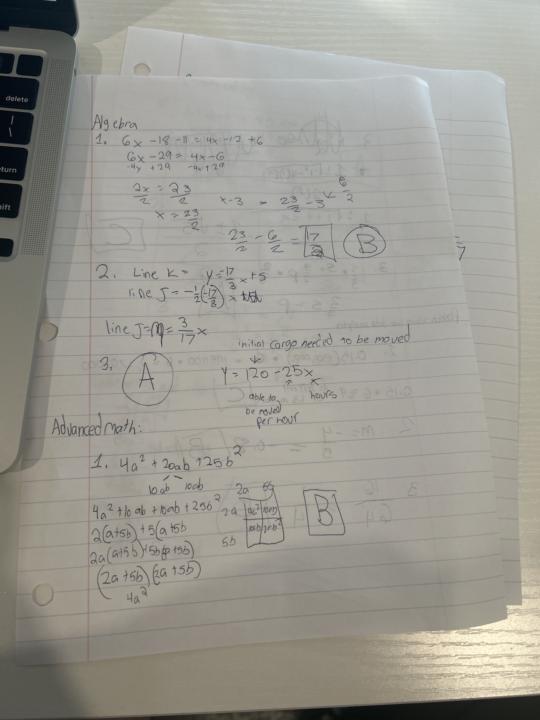 delete
return
shift
Algebra
1. 6x - 18 - 11 = 4x - 12 + 6
6x - 29 = 4x - 6
-4x + 29 -4x + 29
2x/2 = 23/2
x = 23/2
x - 3 = 23/2 - 3 < 6/2
23/2 - 6/2 = 17/2 B
2. Line K = y = 17/3 x + 5
line J = -1/2 (-17/3) x
line J = m = 3/17 x
initial cargo needed to be moved
3. A y = 120 - 25x
able to be moved per hour
hours
Advanced math:
1. 4a² + 20ab + 25b²
10ab 10ab
4a² + 10ab + 10ab + 25b²
2(a+5b) + 5(a+5b
2a(a+5b) + 5b(a+5b)
(2a+5b)(2a+5b)
4a²
2a 5b
2a 4a² 10ab
5b 10ab 25b²
B